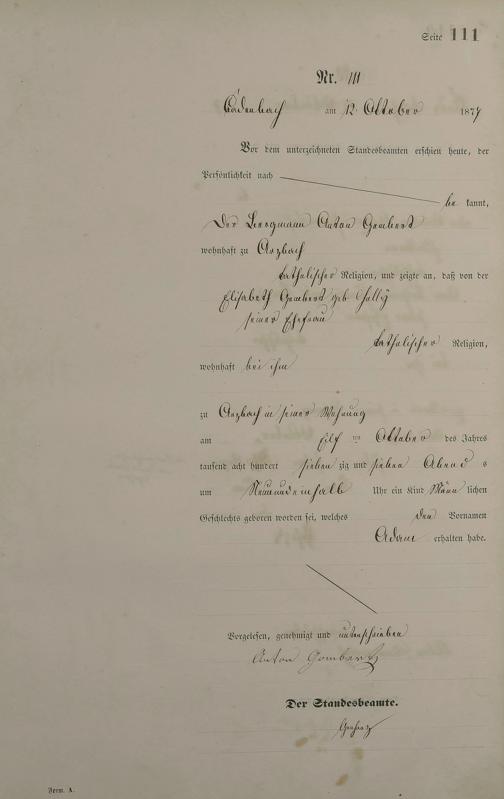 Seite 111
Nr. 111
Cadenbach am 12 Oktober 1877
Vor dem unterzeichneten Standesbeamten erschien heute, der
Persönlichkeit nach
be kannt,
Der Bergmann Anton Gombert
wohnhaft zu Arzbach
katholischer Religion, und zeigte an, daß von der
Elisabeth Gombert geb
seiner Ehefrau
katholischer Religion,
wohnhaft bei ihm
zu Arzbach in seiner Wohnung
am Eilf ten Oktober des Jahres
tausend acht hundert sieben zig und sieben Abend s
um Neunundeinhalb Uhr ein Kind Männ lichen
Geschlechts geboren worden sei, welches den Vornamen
Adam erhalten habe.
Vorgelesen, genehmigt und unterschrieben
Anton Gombert
Der Standesbeamte.
Form. A.